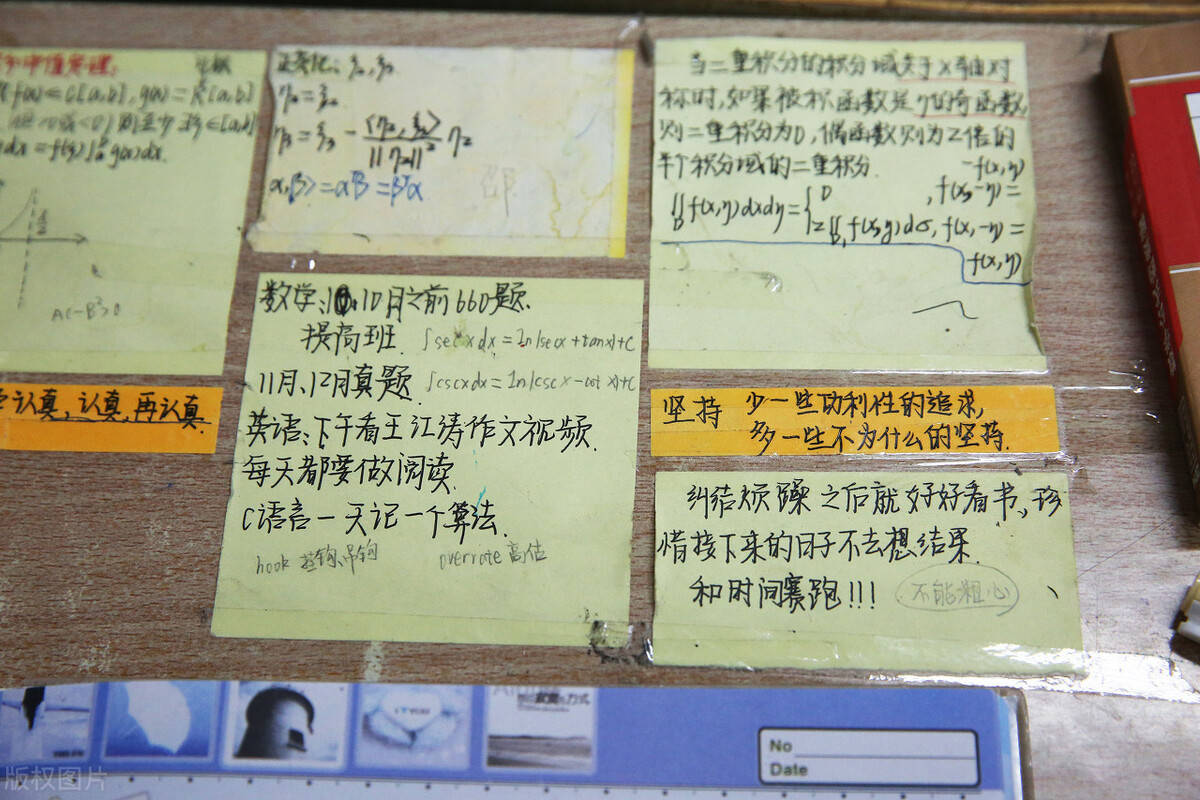 中值定理.
f(x)∈C[a,b], g(x)∈R[a,b]
dx=f(ξ)∫g(x)dx.
AC-B²>0
认真,认真,再认真.
正交化: ξ₂,ξ₃
η₂=ξ₂
η₃=ξ₃-(η₂,ξ₃)/||η₂||² η₂
α,β>=αᵀβ=βᵀα
当二重积分的积分域关于x轴对
称时,如果被积函数是y的奇函数,
则二重积分为0,偶函数则为2倍的
半个积分域的二重积分.
∬f(x,y)dxdy={0 ,f(x,-y)=-f(x,y)
D
2∬f(x,y)dσ,f(x,-y)=f(x,y)
D₁
数学:10月之前660题.
提高班 ∫secxdx=ln|secx+tanx|+C
11月、12月真题 ∫cscxdx=ln|cscx-cotx|+C
英语:下午看王江涛作文视频.
每天都要做阅读.
C语言一天记一个算法.
hook 吊钩 overrate 高估
坚持 少一些功利性的追求,
多一些不为什么的坚持.
纠结烦躁之后就好好看书,珍
惜接下来的日子不去想结果.
和时间赛跑!!! 不能粗心
No
Date
版权图片